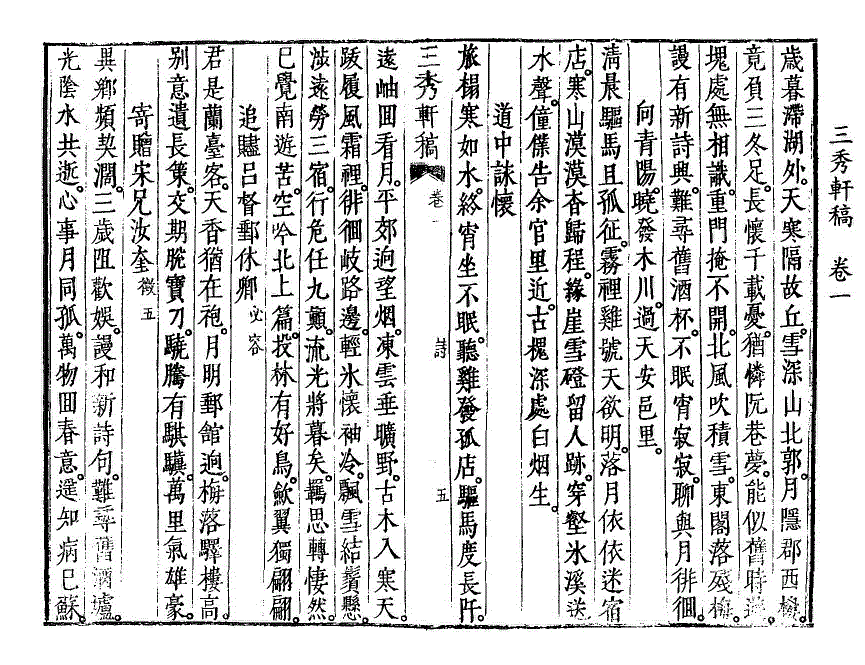 三秀軒稿 卷一
歲暮滯湖外。天寒隔故丘。雪深山北郭。月隱郡西樓。
竟負三冬足。長懷千載憂。猶憐阮巷夢。能似舊時遊。
塊處無相識。重門掩不開。北風吹積雪。東閣落殘梅。
謾有新詩興。難尋舊酒杯。不眠宵寂寂。聊與月徘徊。
向青陽。曉發木川。過天安邑里。
淸晨驅馬且孤征。霧裡雞號天欲明。落月依依迷宿
店。寒山漠漠杳歸程。緣崖雪磴留人跡。穿壑氷溪送
水聲。僮僕告余官里近。古槐深處白烟生。
道中詠懷
旅榻寒如水。終宵坐不眠。聽雞發孤店。驅馬度長阡。
三秀軒稿 卷一 詩 五
遠岫回看月。平郊逈望烟。凍雲垂曠野。古木入寒天。
跋履風霜裡。徘徊岐路邊。輕氷懷袖冷。飄雪結鬚懸。
涉遠勞三宿。行危任九顚。流光將暮矣。羈思轉悽然。
已覺南遊苦。空吟北上篇。投林有好鳥。歛翼獨翩翩。
追贐呂督郵休卿 必容
君是蘭臺客。天香猶在袍。月明郵館逈。梅落驛樓高。
別意遺長策。交期脫寶刀。驍騰有騏驥。萬里氣雄豪。
寄贈宋兄汝奎 徵五
異鄉頻契濶。三歲阻歡娛。謾和新詩句。難尋舊酒壚。
光陰水共逝。心事月同孤。萬物回春意。遥知病已蘇。